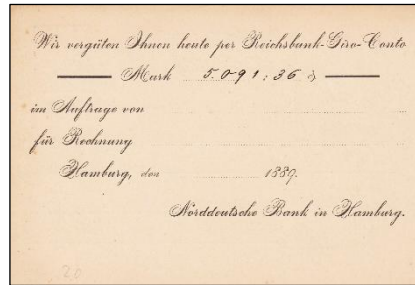 Wir vergüten Ihnen heute per Reichsbank-Giro-Conto
Mark 5.091:36 ₰
im Auftrage von
für Rechnung
Hamburg, den 1889.
Norddeutsche Bank in Hamburg.
20